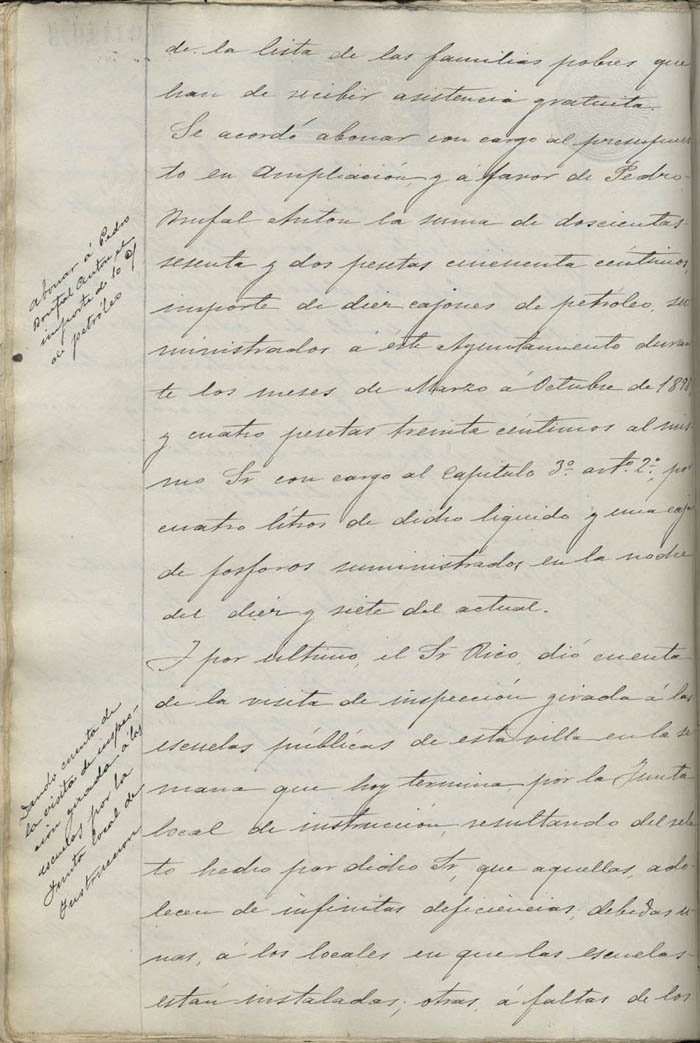 de la lista de las familias pobres que
han de recibir asistencia gratuita.
Se acordó abonar con cargo al presupues
to en Ampliación, y á favor de Pedro
Brufal Anton la suma de doscientas
sesenta y dos pesetas cincuenta céntimos
importe de diez cajones de petróleo, su
ministrados a éste Ayuntamiento duran
te los meses de Marzo á Octubre de 1898,
y cuatro pesetas treinta céntimos al mis
mo Sr con cargo al Capitulo 3º artº 2º, por
cuatro litros de dicho liquido y una caja
de fosforos suministrados en la noche
del diez y siete del actual.
Y por ultimo, el Sr Rico, dió cuenta
de la visita de inspección girada á las
escuelas públicas de esta villa en la se
mana que hoy termina por la Junta
local de instrucción, resultando del rela
to hecho por dicho Sr, que aquellas, ado-
lecen de infinitas deficiencias, debidas u-
nas, á los locales en que las escuelas
están instaladas; otras, á faltas de los
Abonar á Pedro
Brufal Anton el
importe de lo
de petróleo
Dando cuenta de
la visita de inspec-
ción girada á las
escuelas por la
Junta local de
Instruccion